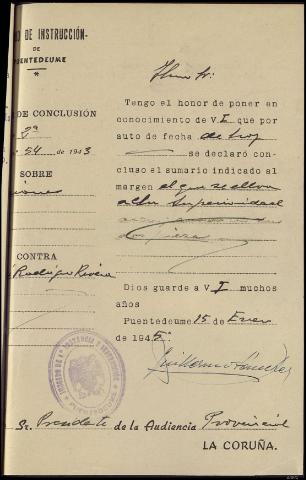 O DE INSTRUCCIÓN-
DE
PUENTEDEUME
DE CONCLUSIÓN
54 de 1943
SOBRE
iones
CONTRA
Rodrigo Rivera
Ilmo Sr:
Tengo el honor de poner en
conocimiento de V. I que por
auto de fecha de hoy
se declaró con-
cluso el sumario indicado al
margen el que se eleva
a la Superioridad
Dios guarde a V I muchos
años
Puentedeume 15 de Enero
de 1945
Guillermo Sánchez
JUZGADO DE 1ª INSTANCIA E INSTRUCCION
PUENTEDEUME
Sr. Presidente de la Audiencia Provincial
LA CORUÑA.